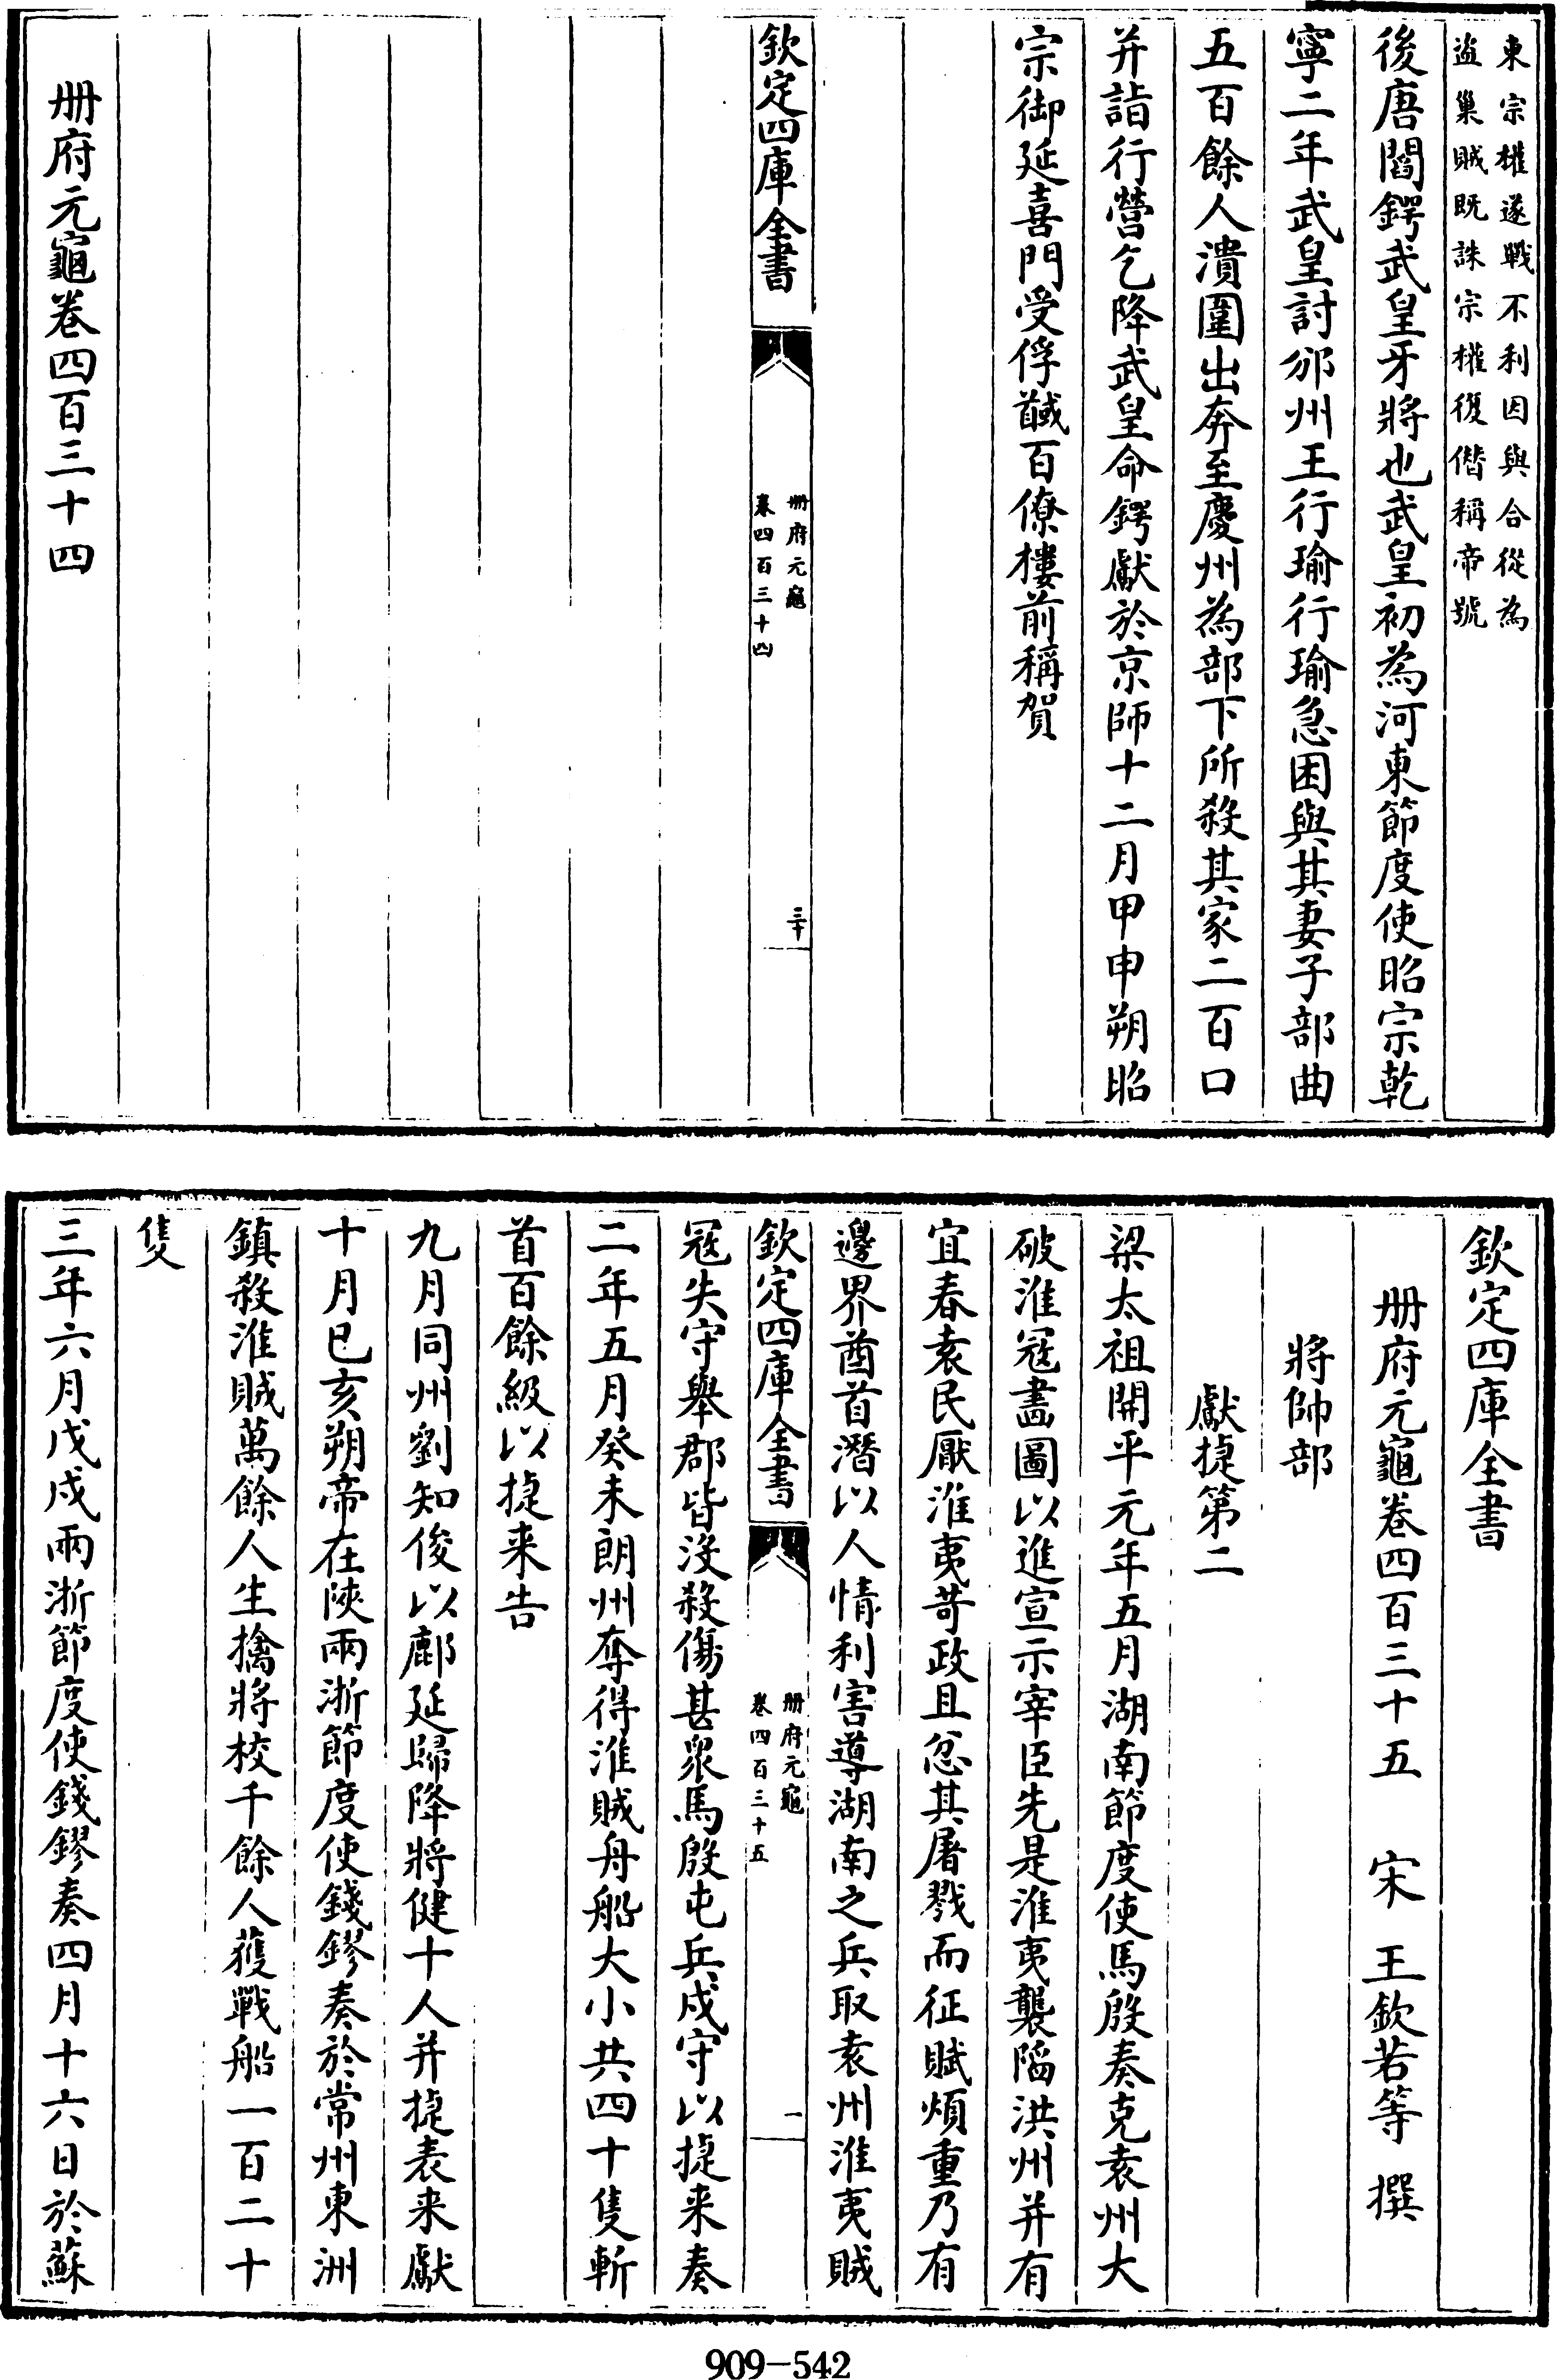 東宗權遂戰不利因與合從為
盗巢賊既誅宗權復僭稱帝號
後唐閻鍔武皇牙將也武皇初為河東節度使昭宗乾
寧二年武皇討邠州王行瑜行瑜急困與其妻子部曲
五百餘人潰圍出奔至慶州為部下所殺其家二百口
并詣行營乞降武皇命鍔獻於京師十二月甲申朔昭
宗御延喜門受俘馘百僚樓前稱賀
欽定四庫全書
册府元龜
卷四百三十四
三十
册府元龜卷四百三十四
欽定四庫全書
册府元龜卷四百三十五 宋 王欽若等 撰
將帥部
獻捷第二
梁太祖開平元年五月湖南節度使馬殷奏克袁州大
破淮冦畵圖以進宣示宰臣先是淮夷襲陷洪州并有
宜春袁民厭淮夷苛政且忿其屠戮而征賦煩重乃有
邊界酋首潛以人情利害導湖南之兵取袁州淮夷賊
欽定四庫全書
册府元龜
卷四百三十五
一
冦失守舉郡皆沒殺傷甚衆馬殷屯兵戍守以捷来奏
二年五月癸未朗州奪得淮賊舟船大小共四十隻斬
首百餘級以捷来告
九月同州劉知俊以鄜延歸降將健十人并捷表来獻
十月已亥朔帝在陜兩浙節度使錢鏐奏於常州東洲
鎮殺淮賊萬餘人生擒將校千餘人獲戰船一百二十
隻
三年六月戊戌兩浙節度使錢鏐奏四月十六日於蘇
909-542